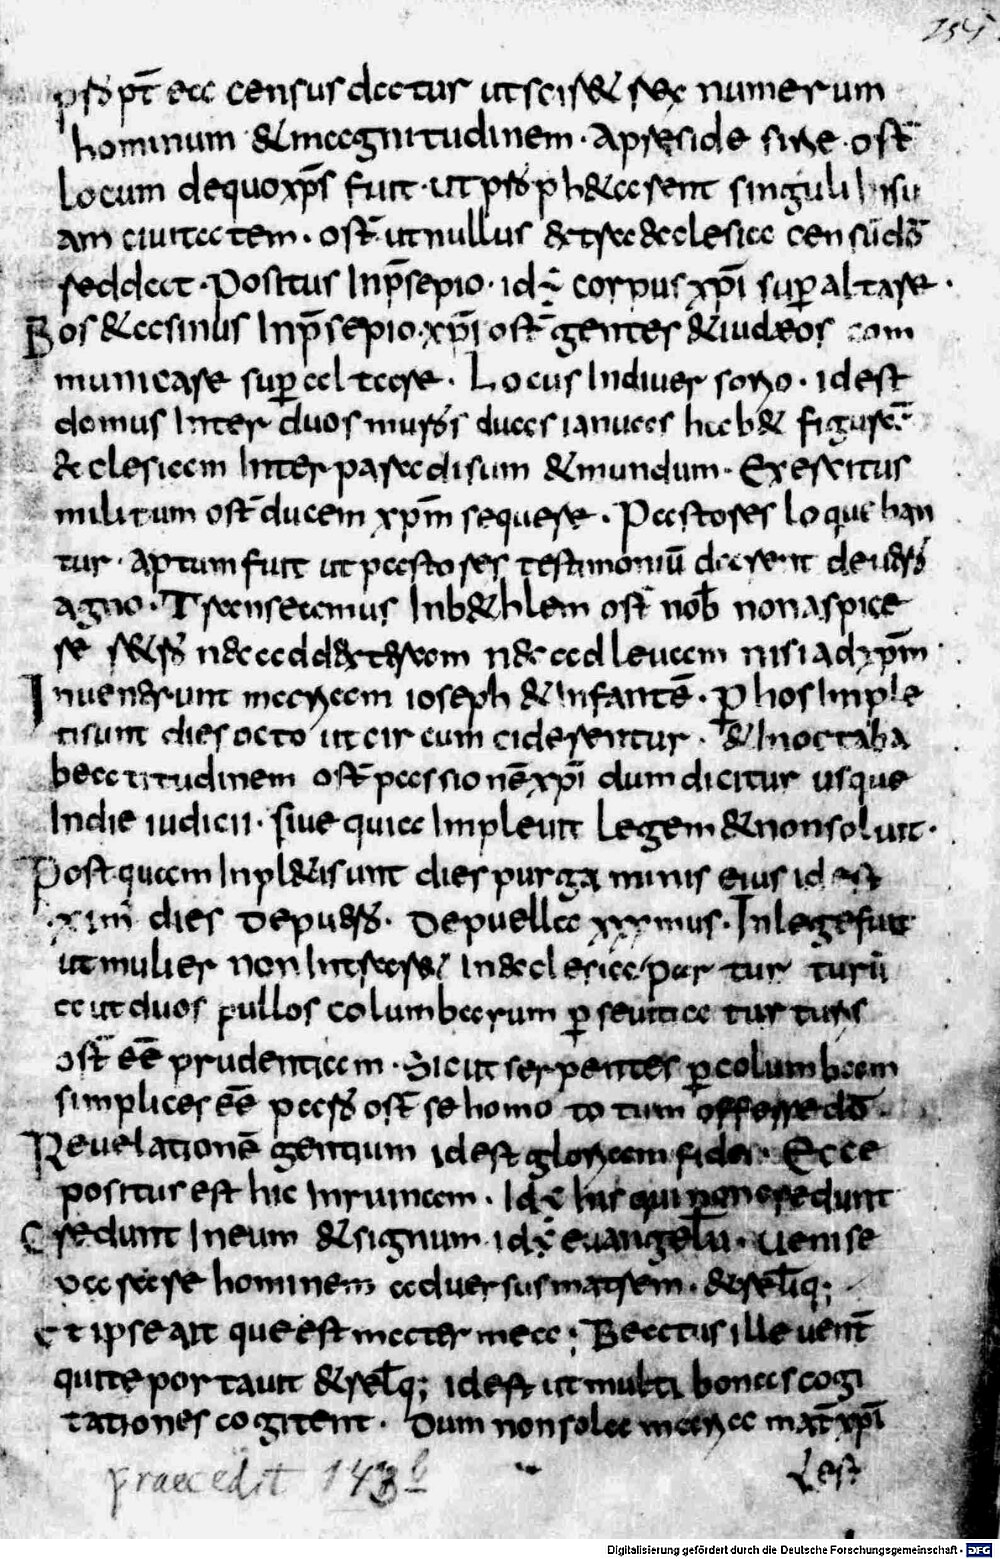 254
p̄pt ea census datur ut sciret rex numerum
hominum & magnitudinem · A preside sire · ost̄
locum de quo xp̄s fuit · ut singuli
am ciuitatem · ost̄ ut nullus &c̄lesiae censū dō
sed dat · Positus In p̄sepio · id ÷ corpus xp̄i sup̄ altare ·
Bos & asinus In p̄sepio · xp̄i ost̄ gentes & iudeos com
municare sup̄ altare · Locus In diuersorio · id est
domus Inter duos muros duas ianuas hab& figurā
&clesiam Inter paradisum & mundum · Exercitus
militum ost̄ ducem xp̄m sequere · Pastores loqueban
tur · aptum fuit ut pastores testimoniū darent de uero
agno · Transeamus In b&hlem ost̄ nob̄ non aspice
re nec ad nec ad leuam nisi ad xp̄m ·
Inuenerunt mariam ioseph & Infantē · p̄ hos Imple
ti sunt dies octo ut circumciderentur · & In octaba
beatitudinem ost̄ passionē xp̄i dum dicitur usque
In die iudicii · siue quia Impleuit legem & non soluit ·
Postquam Inpl&i sunt dies purgaminis eius id est
dies de puero · De puella · In lege fuit
ut mulier non Intrar& In &clesia par turturū
aut duos pullos columbarum p̄ seuitia turturis
ost̄ eē prudentiam · Sicut serpentes p̄ columbam
simplices eē pasro ost̄ se homo totum offerre dō ·
Reuelationē gentium id est gloriam fidei · Ecce
positus est hic In ruinam · Id ÷ his qui non credunt
credunt In eum & signum · id ÷ euangeliū · Ueni se
parare hominem aduersus matrem · & reliq;
Et ipse ait que est mater mea ; Beatus ille uent̄
qui te portauit & reliq; id est ut multi bonas cogi
tationes cogitent · Dum non sola maria mat̄ xp̄i
praecedit 143b
Lest
Digitalisierung gefördert durch die Deutsche Forschungsgemeinschaft - DFG